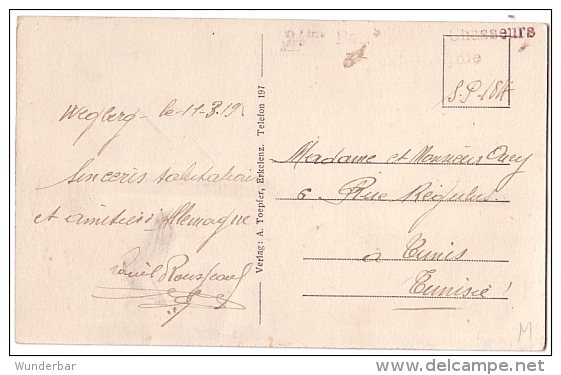 24ème Chasseurs
S.P. 184
Wegberg - le 11-3.19
Sincères salutations
et amitiés Allemagne
Rousseau
Verlag: A. Toepfer, Erkelenz. Telefon 197
Madame et Monsieur
6 Rue Régulus
à Tunis
Tunisie!
M
Wunderbar
delcampe.net